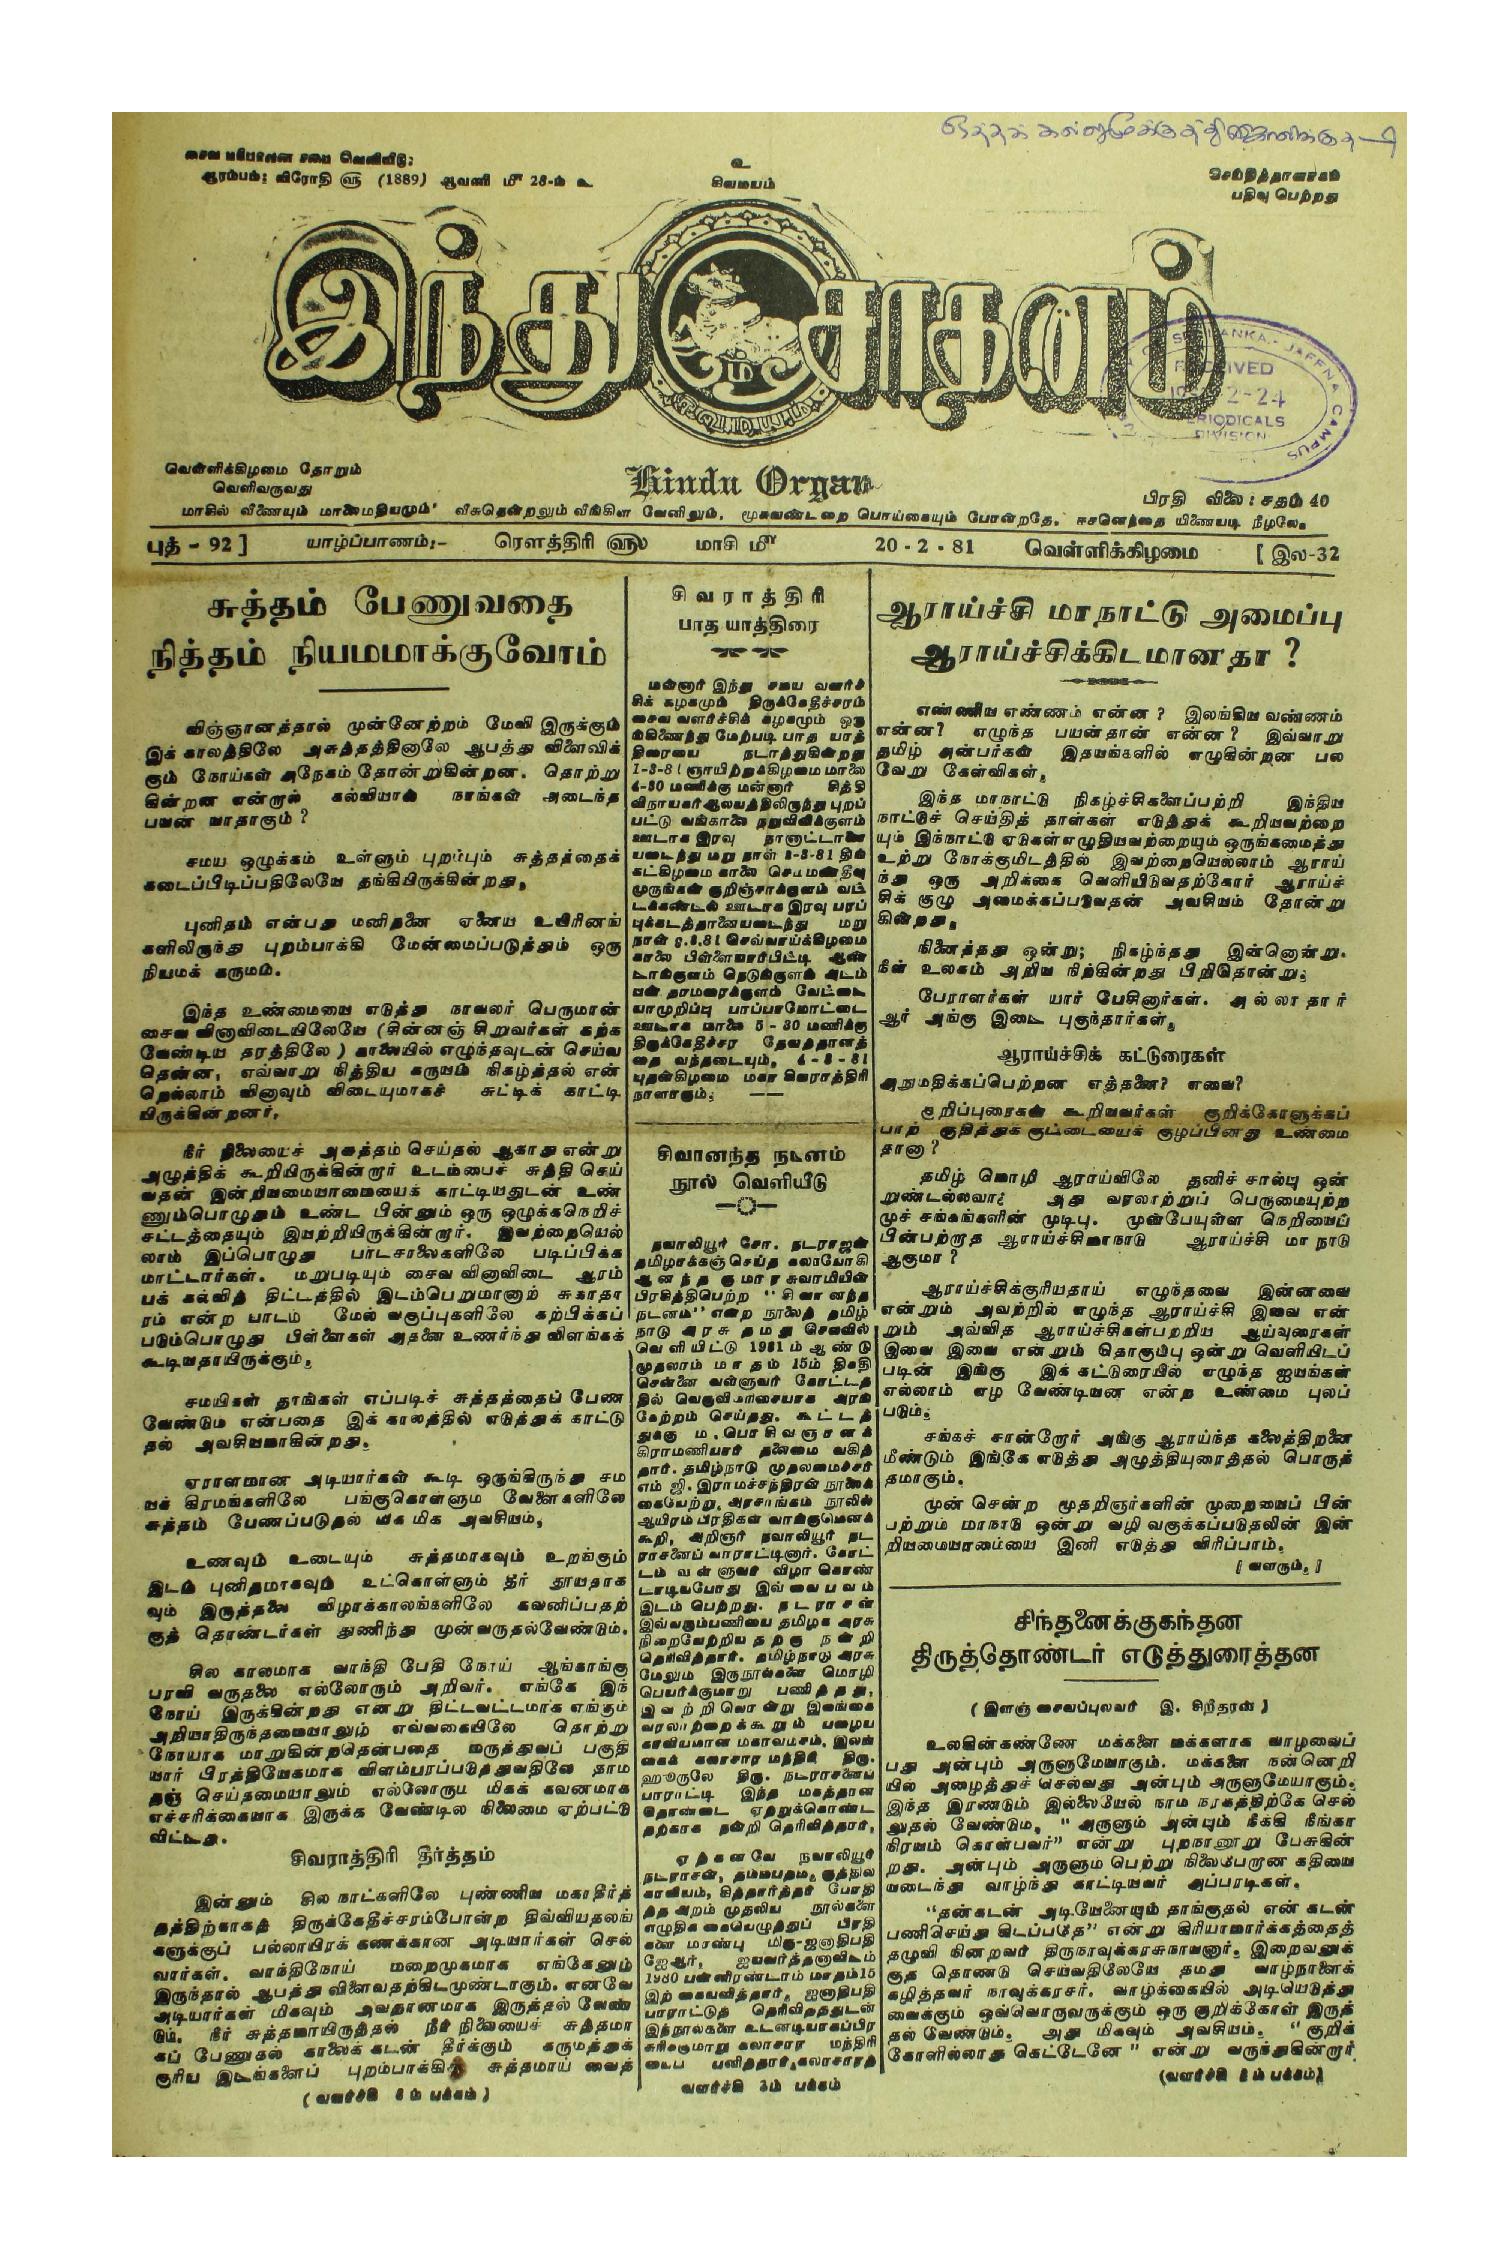 சைவ பரிபாலன சபை வெளியீடு:
ஆரம்பம்: விரோதி ௵ (1889) ஆவணி மீ 28-ம் உ
உ
சிவமயம்
செய்தித்தாளாகப்
பதிவு பெற்றது
இந்து சாதனம்
RECEIVED
PERIODICALS
DIVISION
வெள்ளிக்கிழமை தோறும்
வெளிவருவது
Hindu Organ
பிரதி விலை: சதம் 40
மாசில் வீணையும் மாலைமதியமும் வீசுதென்றலும் வீங்கிள வேனிலும், மூசுவண்டறை பொய்கையும் போன்றதே, ஈசனெந்தை யிணையடி நீழலே.
புத் - 92 ] யாழ்ப்பாணம்:- ரௌத்திரி ௵ மாசி மீ 20 - 2 - 81 வெள்ளிக்கிழமை [ இல-32
சுத்தம் பேணுவதை
நித்தம் நியமமாக்குவோம்
விஞ்ஞானத்தால் முன்னேற்றம் மேவி இருக்கும்
இக் காலத்திலே அசுத்தத்தினாலே ஆபத்து விளைவிக்
கும் நோய்கள் அநேகம் தோன்றுகின்றன. தொற்று
கின்றன என்றால் கல்வியால் நாங்கள் அடைந்த
பயன் யாதாகும்?
சமய ஒழுக்கம் உள்ளும் புறம்பும் சுத்தத்தைக்
கடைப்பிடிப்பதிலேயே தங்கியிருக்கின்றது.
புனிதம் என்பது மனிதனை ஏனைய உயிரினங்
களிலிருந்து புறம்பாக்கி மேன்மைப்படுத்தும் ஒரு
நியமக் கருமம்.
இந்த உண்மையை எடுத்து நாவலர் பெருமான்
சைவ வினாவிடையிலேயே (சின்னஞ் சிறுவர்கள் கற்க
வேண்டிய தரத்திலே) காலையில் எழுந்தவுடன் செய்வ
தென்ன, எவ்வாறு நித்திய கருமம் நிகழ்த்தல் என்
றெல்லாம் வினாவும் விடையுமாகச் சுட்டிக் காட்டி
யிருக்கின்றனர்.
நீர் நிலையைச் அசுத்தம் செய்தல் ஆகாது என்று
அழுத்திக் கூறியிருக்கின்றார் உடம்பைச் சுத்தி செய்
வதன் இன்றியமையாமையைக் காட்டியதுடன் உண்
ணும்பொழுதும் உண்ட பின்னும் ஒரு ஒழுக்கநெறிச்
சட்டத்தையும் இயற்றியிருக்கின்றார். இவற்றையெல்
லாம் இப்பொழுது பாடசாலைகளிலே படிப்பிக்க
மாட்டார்கள். மறுபடியும் சைவ வினாவிடை ஆரம்
பக் கல்வித் திட்டத்தில் இடம்பெறுமானாற் சுகாதா
ரம் என்ற பாடம் மேல் வகுப்புகளிலே கற்பிக்கப்
படும்பொழுது பிள்ளைகள் அதனை உணர்ந்து விளங்கக்
கூடியதாயிருக்கும்.
சமயிகள் தாங்கள் எப்படிச் சுத்தத்தைப் பேண
வேண்டும் என்பதை இக் காலத்தில் எடுத்துக் காட்டு
தல் அவசியமாகின்றது.
ஏராளமான அடியார்கள் கூடி ஒருங்கிருந்து சம
யக் கிரமங்களிலே பங்குகொள்ளும் வேளைகளிலே
சுத்தம் பேணப்படுதல் மிக மிக அவசியம்.
உணவும் உடையும் சுத்தமாகவும் உறங்கும்
இடம் புனிதமாகவும் உட்கொள்ளும் நீர் தூயதாக
வும் இருத்தலை விழாக்காலங்களிலே கவனிப்பதற்
குத் தொண்டர்கள் துணிந்து முன்வருதல்வேண்டும்.
சில காலமாக வாந்தி பேதி நோய் ஆங்காங்கு
பரவி வருதலை எல்லோரும் அறிவர். எங்கே இந்
நோய் இருக்கின்றது என்று திட்டவட்டமாக எங்கும்
அறியாதிருந்தமையாலும் எவ்வகையிலே தொற்று
நோயாக மாறுகின்றதென்பதை மருத்துவப் பகுதி
யார் பிரத்தியேகமாக விளம்பரப்படுத்துவதிலே தாம
தஞ் செய்தமையாலும் எல்லோரும் மிகக் கவனமாக
எச்சரிக்கையாக இருக்க வேண்டிய நிலைமை ஏற்பட்டு
விட்டது.
சிவராத்திரி தீர்த்தம்
இன்னும் சில நாட்களிலே புண்ணிய மகாதீர்த்
தத்திற்காகத் திருக்கேதீச்சரம்போன்ற திவ்வியதலங்
களுக்குப் பல்லாயிரக் கணக்கான அடியார்கள் செல்
வார்கள். வாந்திநோய் மறைமுகமாக எங்கேனும்
இருந்தால் ஆபத்து விளைவதற்கிடமுண்டாகும். எனவே
அடியார்கள் மிகவும் அவதானமாக இருத்தல் வேண்
டும். நீர் சுத்தமாயிருத்தல் நீர் நிலையைச் சுத்தமா
கப் பேணுதல் காலைக் கடன் தீர்க்கும் கருமத்துக்
குரிய இடங்களைப் புறம்பாக்கிச் சுத்தமாய் வைத்
(வளர்ச்சி 6ம் பக்கம்)
சிவராத்திரி
பாதயாத்திரை
மன்னார் இந்து சமய வளர்ச்
சிக் கழகமும் திருக்கேதீச்சரம்
சைவ வளர்ச்சிக் கழகமும் ஒரு
ங்கிணைந்து மேற்படி பாத யாத்
திரையை நடாத்துகின்றது
1-3-81 ஞாயிற்றுக்கிழமை மாலை
4-30 மணிக்கு மன்னார் சித்தி
விநாயகர் ஆலயத்திலிருந்து புறப்
பட்டு வங்காலை நறுவிலிக்குளம்
ஊடாக இரவு நானாட்டானை
யடைந்து மறு நாள் 2-3-81 திங்
கட்கிழமை காலை செம்மண்தீவு
முருங்கன் குறிஞ்சாக்குளம் வட்
டக்கண்டல் ஊடாக இரவு பரப்
புக்கடத்தானையடைந்து மறு
நாள் 3.3.81 செவ்வாய்க்கிழமை
காலை பிள்ளையார்பிட்டி ஆண்
டாங்குளம் நெடுங்குளம் அடம்
பன் தாமரைக்குளம் வேட்டை
யாமுறிப்பு பாப்பாமோட்டை
ஊடாக மாலை 5 - 30 மணிக்கு
திருக்கேதீச்சர தேவத்தானத்
தை வந்தடையும். 4 - 3 - 81
புதன்கிழமை மகா சிவராத்திரி
நாளாகும்.
சிவானந்த நடனம்
நூல் வெளியீடு
நவாலியூர் சோ. நடராஜன்
தமிழாக்கஞ் செய்த கலாயோகி
ஆனந்த குமாரசுவாமியின்
பிரசித்திபெற்ற "சிவானந்த
நடனம்" என்ற நூலைத் தமிழ்
நாடு அரசு தமது செலவில்
வெளியிட்டு 1981ம் ஆண்டு
முதலாம் மாதம் 15ம் திகதி
சென்னை வள்ளுவர் கோட்டத்
தில் வெகுவிமரிசையாக அரங்
கேற்றம் செய்தது. கூட்டத்
துக்கு ம. பொ சிவஞானக்
கிராமணியார் தலைமை வகித்
தார். தமிழ்நாடு முதலமைச்சர்
எம் ஜி. இராமச்சந்திரன் நூலைக்
கையேற்று, அரசாங்கம் நூலில்
ஆயிரம் பிரதிகள் வாங்குமெனக்
கூறி, அறிஞர் நவாலியூர் நட
ராசனைப் பாராட்டினார். கோட்
டம் வள்ளுவர் விழா கொண்
டாடியபோது இவ்வைபவம்
இடம் பெற்றது. நடராசன்
இவ்வரும்பணியை தமிழக அரசு
நிறைவேற்றியதற்கு நன்றி
தெரிவித்தார். தமிழ்நாடு அரசு
மேலும் இரு நூல்களை மொழி
பெயர்க்குமாறு பணித்தது,
இவற்றிலொன்று இலங்கை
வரலாற்றைக்கூறும் பழைய
காவியமான மகாவம்சம். இலங்
கைக் கலாசார மந்திரி திரு.
ஹுருலே திரு. நடராசனைப்
பாராட்டி இந்த மகத்தான
தொண்டை ஏற்றுக்கொண்ட
தற்காக நன்றி தெரிவித்தார்.
ஏற்கனவே நவாலியூர்
நடராசன், தம்மபதம், குத்தில
காவியம், சித்தார்த்தர் போதி
த்த அறம் முதலிய நூல்களை
எழுதிக் கையெழுத்துப் பிரதி
களை மாண்பு மிகு-ஜனாதிபதி
ஜே.ஆர். ஜயவர்த்தனாவிடம்
1980 பன்னிரண்டாம் மாதம் 15
இற் கையளித்தார். ஜனாதிபதி
பாராட்டுத் தெரிவித்ததுடன்
இந்நூல்களை உடனடியாகப்பிர
சுரிக்குமாறு கலாசார மந்திரி
யைப் பணித்தார். கலாசாரத்
வளர்ச்சி 3ம் பக்கம்
ஆராய்ச்சி மாநாட்டு அமைப்பு
ஆராய்ச்சிக்கிடமானதா ?
எண்ணிய எண்ணம் என்ன? இலங்கிய வண்ணம்
என்ன? எழுந்த பயன்தான் என்ன? இவ்வாறு
தமிழ் அன்பர்கள் இதயங்களில் எழுகின்றன பல
வேறு கேள்விகள்.
இந்த மாநாட்டு நிகழ்ச்சிகளைப்பற்றி இந்திய
நாட்டுச் செய்தித் தாள்கள் எடுத்துக் கூறியவற்றை
யும் இந்நாட்டு ஏடுகள்எழுதியவற்றையும் ஒருங்கமைத்து
உற்று நோக்குமிடத்தில் இவற்றையெல்லாம் ஆராய்
ந்து ஒரு அறிக்கை வெளியிடுவதற்கோர் ஆராய்ச்
சிக் குழு அமைக்கப்படுவதன் அவசியம் தோன்று
கின்றது.
நினைத்தது ஒன்று; நிகழ்ந்தது இன்னொன்று.
நீள் உலகம் அறிய நிற்கின்றது பிறிதொன்று.
பேராளர்கள் யார் பேசினார்கள். அல்லாதார்
ஆர் அங்கு இடை புகுந்தார்கள்.
ஆராய்ச்சிக் கட்டுரைகள்
அநுமதிக்கப்பெற்றன எத்தனை? எவை?
குறிப்புரைகள் கூறியவர்கள் குறிக்கோளுக்கப்
பாற் குதித்துக் குட்டையைக் குழப்பினது உண்மை
தானா?
தமிழ் மொழி ஆராய்விலே தனிச் சால்பு ஒன்
றுண்டல்லவா? அது வரலாற்றுப் பெருமையுற்ற
முச் சங்கங்களின் முடிபு. முன்பேயுள்ள நெறியைப்
பின்பற்றாத ஆராய்ச்சிமாநாடு ஆராய்ச்சி மாநாடு
ஆகுமா?
ஆராய்ச்சிக்குரியதாய் எழுந்தவை இன்னவை
என்றும் அவற்றில் எழுந்த ஆராய்ச்சி இவை என்
றும் அவ்வித ஆராய்ச்சிகள்பற்றிய ஆய்வுரைகள்
இவை இவை என்றும் தொகுப்பு ஒன்று வெளியிடப்
படின் இங்கு இக் கட்டுரையில் எழுந்த ஐயங்கள்
எல்லாம் எழ வேண்டியன என்ற உண்மை புலப்
படும்.
சங்கச் சான்றோர் அங்கு ஆராய்ந்த கலைத்திறனை
மீண்டும் இங்கே எடுத்து அழுத்தியுரைத்தல் பொருத்
தமாகும்.
முன் சென்ற மூதறிஞர்களின் முறையைப் பின்
பற்றும் மாநாடு ஒன்று வழி வகுக்கப்படுதலின் இன்
றியமையாமையை இனி எடுத்து விரிப்பாம்.
[ வளரும். ]
சிந்தனைக்குகந்தன
திருத்தொண்டர் எடுத்துரைத்தன
( இளஞ் சைவப்புலவர் இ. சிறிதரன் )
உலகின்கண்ணே மக்களை மக்களாக வாழவைப்
பது அன்பும் அருளுமேயாகும். மக்களை நன்னெறி
யில் அழைத்துச் செல்வது அன்பும் அருளுமேயாகும்.
இந்த இரண்டும் இல்லையேல் நாம் நரகத்திற்கே செல்
லுதல் வேண்டும். "அருளும் அன்பும் நீக்கி நீங்கா
நிரயம் கொள்பவர்" என்று புறநானூறு பேசுகின்
றது. அன்பும் அருளும் பெற்று நிலைபேறான கதியை
யடைந்து வாழ்ந்து காட்டியவர் அப்பரடிகள்.
"தன்கடன் அடியேனையும் தாங்குதல் என் கடன்
பணிசெய்து கிடப்பதே" என்று கிரியாமார்க்கத்தைத்
தழுவி நின்றவர் திருநாவுக்கரசுநாயனார். இறைவனுக்
குத் தொண்டு செய்வதிலேயே தமது வாழ்நாளைக்
கழித்தவர் நாவுக்கரசர். வாழ்க்கையில் அடியெடுத்து
வைக்கும் ஒவ்வொருவருக்கும் ஒரு குறிக்கோள் இருத்
தல் வேண்டும். அது மிகவும் அவசியம். "குறிக்
கோளில்லாது கெட்டேனே" என்று வருந்துகின்றார்
(வளர்ச்சி 2ம் பக்கம்)